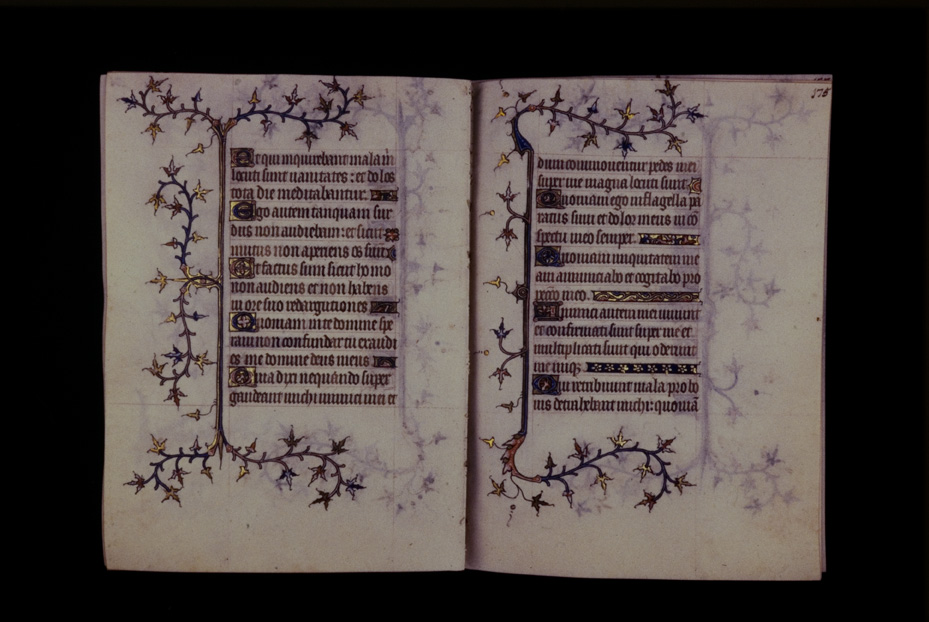 Et qui inquirebant mala m
locuti sunt uanitates: et dolos
tota die meditabantur.
Ego autem tanquam sur
dus non audiebam: et sicut
mutus non aperiens os suũ
Et factus sum sicut homo
non audiens et non habens
in ore suo redargutiones
Quoniam in te domine spe
raui non confundar tu exaudi
es me domine deus meus
Quia dixi nequando super
gaudeant michi inimici mei et
175
dum commouentur pedes mei
super me magna locuti sunt
Quoniam ego in flagella pa
ratus sum et dolor meus in cõ
spectu meo semper.
Quoniam iniquitatem me
am annunciabo et cogitabo pro
pctõ meo.
Inimici autem mei uiuunt
et confirmati sunt super me et
multiplicati sunt qui oderunt
me iniq;
Qui retribuunt mala pro bo
nis detrahebant michi: quoniã